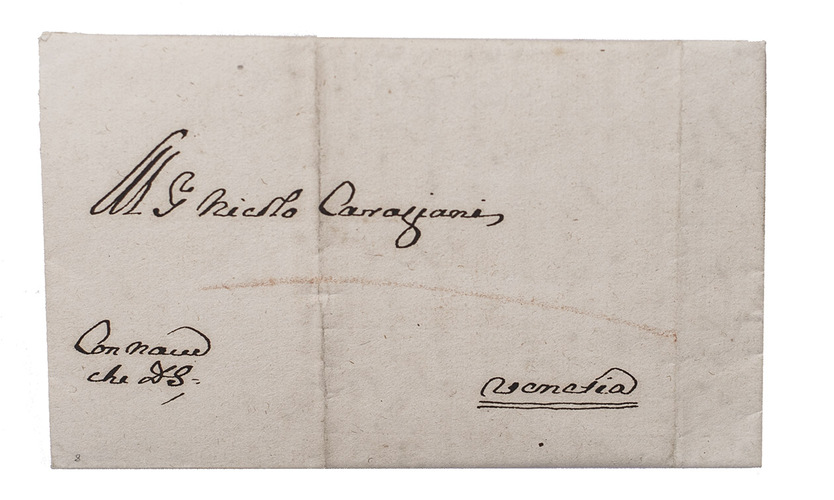 All Sr Nicolo Caragiani
Con nave
che DS:
Venetia
8